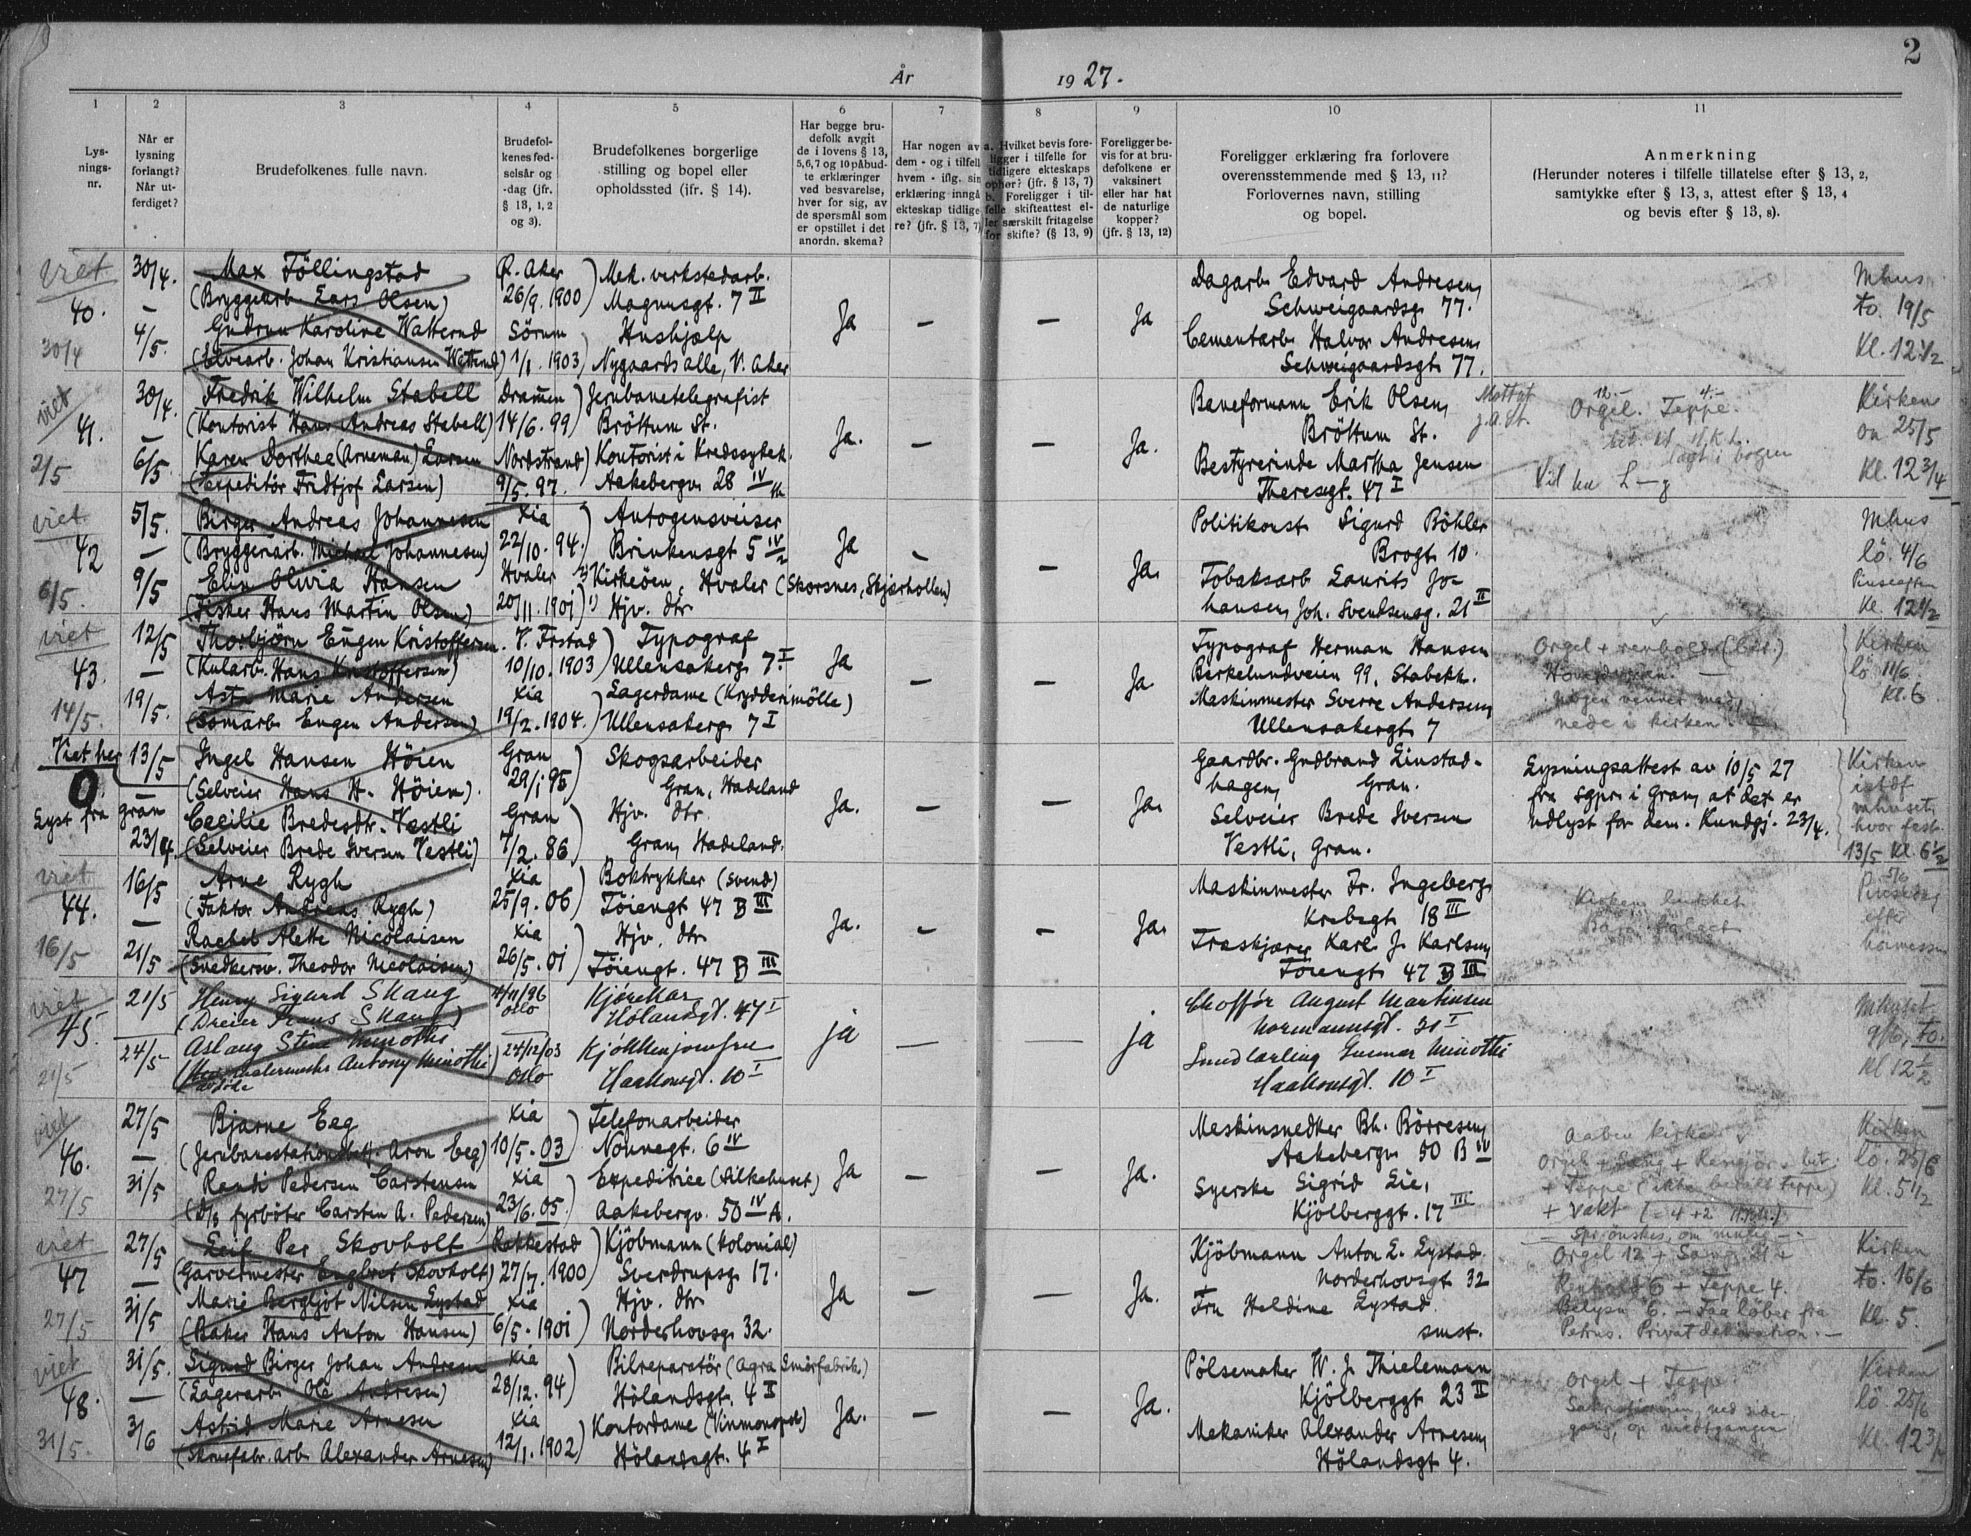 2
År 1927.
1 2 3 4 5 6 7 8 9 10 11
Lysningsnr.
Når er lysning forlangt? Når utferdiget?
Brudefolkenes fulle navn.
Brudefolkenes fødselsår og -dag (jfr. § 13, 1, 2 og 3).
Brudefolkenes borgerlige stilling og bopel eller opholdssted (jfr. § 14).
Har begge brudefolk avgit de i lovens § 13, 5,6,7 og 10 påbudte erklæringer ved besvarelse, hver for sig, av de spørsmål som er opstillet i det anordn. skema?
Har nogen av dem - og i tilfelle hvem - iflg. sin erklæring inngå ekteskap tidligere? (jfr. § 13, 7)
a. Hvilket bevis foreligger i tilfelle for tidligere ekteskaps ophør? (jfr. § 13, 7) b. Foreligger i tilfelle skifteattest eller særskilt fritagelse for skifte? (§ 13, 9)
Foreligger bevis for at brudefolkene er vaksinert eller har hat de naturlige kopper? (jfr. § 13, 12)
Foreligger erklæring fra forlovere overensstemmende med § 13, 11? Forlovernes navn, stilling og bopel.
Anmerkning
(Herunder noteres i tilfelle tillatelse efter § 13, 2, samtykke efter § 13, 3, attest efter § 13, 4 og bevis efter § 13, 8).
viet 30/4. Max Föllingstad Ö. Aker Mek. verkstedarb. Dagarb. Edvard Andresen, Mhus
40. — (Bryggearb. Lars Olsen) 26/9. 1900 Magnusgt. 7 II Ja — — Ja Schweigaardsg. 77. to. 19/5
4/5. Gudrun Karoline Watternd Sörum Hushjælp Cementarb. Halvor Andresen,
30/4 (Elvearb. Johan Kristiansen Watternd) 1/1. 1903 Nygaards alle, V. Aker Schweigaardsgt. 77. Kl. 12 1/2
viet 30/4. Fredrik Wilhelm Stabell Drammen Jernbanetelegrafist Baneformann Erik Olsen, Orgel. 12.- Teppe. 4.- Kirken
41. — (Kontorist Hans Andreas Stabell) 14/6. 99 Bröttum St. Ja. — — Ja. Bröttum St. on 25/5
6/5 Karen Dorthea (Arneman) Larsen Nordstrand Kontorist i Kredssykek. Bestyrerinde Martha Jensen lagt i bogen
2/5 (Expeditör Fridtjof Larsen) 9/5. 97. Aakebergv. 28 IV Theresegt. 47 I Kl. 12 3/4
viet 5/5. Birger Andreas Johannesen Xia Autogensveiser Politikonst. Sigurd Böhler Mhus
42 — (Bryggeriarb. Michael Johannesen) 22/10. 94. Brinkensgt 5 IV Ja - — Ja. Brogt. 10. lö. 4/6
9/5 Elin Olivia Hansen Hvaler Kirkeöen, Hvaler (Skorsnes, Skjærhollen) Tobaksarb. Laurits Jo- Pinseaften
6/5. (Fisker Hans Martin Olsen) 20/11. 1901 Hjv. dtr. hansen, Joh. Svendseng. 21 II Kl. 12 1/2
viet 12/5 Thorbjörn Eugen Kristoffersen. Typograf Typograf Herman Hansen Orgel + renhold Kirken
43. — (Kularb. Hans Kristoffersen) 10/10. 1903 Ullensakerg. 7 I Ja — — Ja Birkelundveien 99, Stabekk. lö. 11/6
19/5. Asta Marie Andersen Xia Lagerdame (Krydderimölle) Maskinmester Sverre Andersen, nogen venner med, Kl. 6
14/5. (Sömarb. Eugen Andersen) 19/2. 1904. Ullensakerg. 7 I Ullensakergt 7 nede i kirken.
Viet her 13/5 Ingel Hansen Höien Gran Skogsarbeider Gaardbr. Gudbrand Linstad- Lysningsattest av 10/5 27 Kirken
0. — (Selveier Hans H. Höien) 29/1 95 Gran, Hadeland Ja. — — Ja. hagen, Gran. fra sgpr. i Gran, at det er istdf
Lyst fra gran Cecilie Bredesdtr. Vestli Gran Hjv. dtr. Selveier Brede Iversen udlyst for dem. Kundgj. 23/4. mhuset, hvor fest.
23/4 (Selveier Brede Iversen Vestli) 7/2. 86 Gran, Hadeland. Vestli, Gran. 13/5 Kl. 6 1/2
viet 16/5 Arne Rygh Xia Boktrykker (svend) Maskinmester Fr. Ingeberg, 5/6
44. — (Faktor Andreas Rygh) 25/9. 06 Töiengt 47 B III Ja. - - Ja. Krebsgt. 18 III Kirken Pinsedag
Rachel Alette Nicolaisen Xia Hjv. dtr. Træskjærer Karl J. Karlsen, efter
16/5 21/5 (Snedkersv. Theodor Nicolaisen) 26/5. 01 Töiengt. 47 B III Töiengt 47 B III höimessen
viet 21/5 Henry Sigurd Skaug 4/11/96 Oslo Kjörekar Chafför August Martinsen Mhuset
45. (Dreier Frans Skaug) Hölandsgt. 47 I ja — — ja Normannsgt. 31 I 9/6, to.
24/5 Aslaug Stina Minothi 24/12/03 Kjøkkenjomfru Smedlærling Gunnar Minothi
21/5 Antony Minothi) Oslo Haakonsgt. 10 I Haakonsgt. 10 I Kl 12 1/2
viet 27/5 Bjarne Eeg Xia Telefonarbeider Maskinsnedker Bh. Börresen, Aaben kirke Kirken
46. — (Jernbanestationsbetj. Aron Eeg) 10/5. 03 Nonnegt. 6 IV Ja — — Ja. Aakebergv. 50 B IV Orgel + Sang + Rengjör. lö. 25/6
31/5 Randi Pedersen Carstensen Xia Expeditrice (Silkehuset) Syerske Sigrid Lie, + Teppe Kl. 5 1/2
27/5 (D/s fyrböter Carsten A. Pedersen) 23/6. 05. Aakebergv. 50 IV A. Kjölberggt. 17 III + vakt
viet 27/5 Leif Per Skovholt Rakkestad Kjöbmann (kolonial) Kjöbmann Anton L. Eystad. Orgel 12 + Sang 21 Kirken
47 — (Garvermester Engbret Skovholt) 27/7. 1900 Sverdrupsg. 17. Ja — — Ja. Norderhovsgt 32 Renhold 6 + Teppe 4. to. 16/6
31/5 Marie Bergljot Nilsen Eystad Xia Hjv. dtr. Fru Heldine Eystad. Belysn 6. Kl. 5.
27/5 (Baker Hans Anton Hansen) 6/5. 1901 Norderhovsg. 32. smst. Petrus. Privat dekoration. —
viet 31/5. Sigurd Birger Johan Andresen Xia Bilreparatör (Agra Smörfabrik) Pölsemaker W. J. Thielemann Orgel + Teppe Kirken
48. — (Lagerarb. Ole Andresen) 28/12. 94 Hölandsgt. 4 II Ja. — — Ja. Kjölberggt 23 II lö. 25/6
3/6 Astrid Marie Arnesen Xia Kontordame (Vinmonopol) Mekaniker Alexander Arnesen,
31/5. (Skruefabr. arb. Alexander Arnesen) 12/1. 1902 Hölandsgt. 4 I Hölandsgt 4. Kl. 12